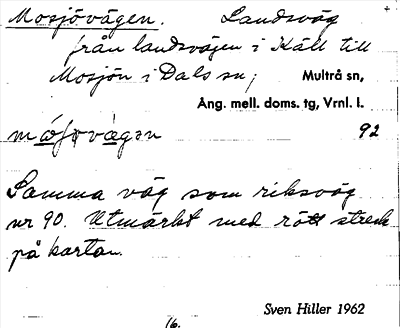 Mosjövägen. Landsväg
från landsvägen i Käll till
Mosjön i Dals sn; Multrå sn,
Ång. mell. doms. tg, Vrnl. l.
92
Samma väg som riksväg
nr 90. Utmärkt med rött streck
på kartan.
Sven Hiller 1962
16.